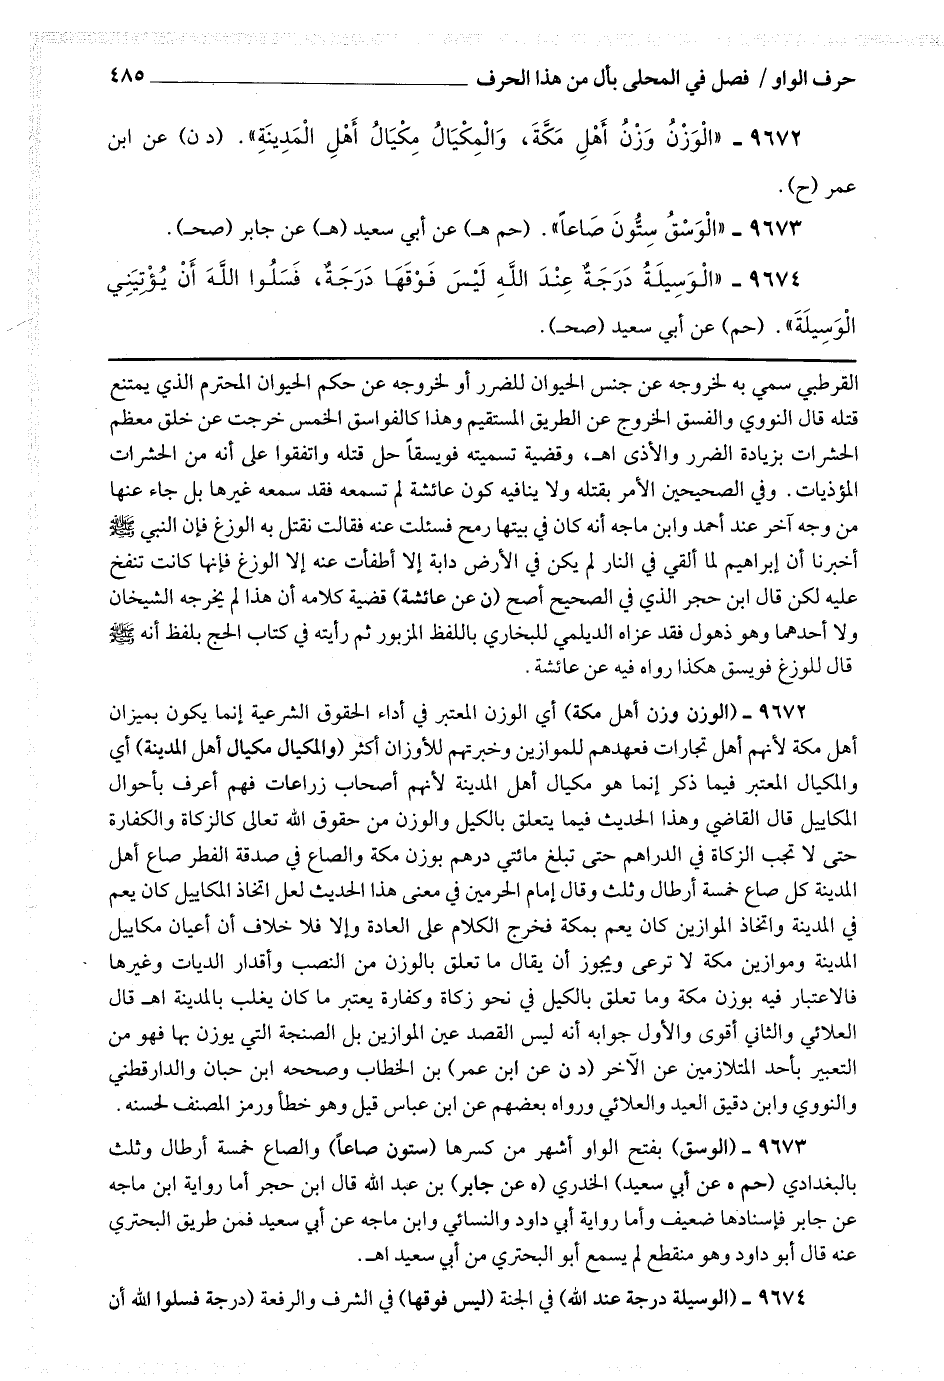 حرف الواو / فصل في المحلى بأل من هذا الحرف ٤٨٥
٩٦٧٢ ـ «الْوَزْنُ وَزْنُ أَهْلِ مَكَّةَ، وَالْمِكْيَالُ مِكْيَالُ أَهْلِ الْمَدِينَةِ». (د ن) عن ابن
عمر (ح).
٩٦٧٣ ـ «الْوَسْقُ سِتُّونَ صَاعاً». (حم هـ) عن أبي سعيد (هـ) عن جابر (صحـ).
٩٦٧٤ ـ «الْوَسِيلَةُ دَرَجَةٌ عِنْدَ اللَّهِ لَيْسَ فَوْقَهَا دَرَجَةٌ، فَسَلُوا اللَّهَ أَنْ يُؤْتِيَنِي
الْوَسِيلَةَ». (حم) عن أبي سعيد (صحـ).
القرطبي سمي به لخروجه عن جنس الحيوان للضرر أو لخروجه عن حكم الحيوان المحترم الذي يمتنع
قتله قال النووي والفسق الخروج عن الطريق المستقيم وهذا كالفواسق الخمس خرجت عن خلق معظم
الحشرات بزيادة الضرر والأذى اهـ، وقضية تسميته فويسقاً حل قتله واتفقوا على أنه من الحشرات
المؤذيات. وفي الصحيحين الأمر بقتله ولا ينافيه كون عائشة لم تسمعه فقد سمعه غيرها بل جاء عنها
من وجه آخر عند أحمد وابن ماجه أنه كان في بيتها رمح فسئلت عنه فقالت نقتل به الوزغ فإن النبي ﷺ
أخبرنا أن إبراهيم لما ألقي في النار لم يكن في الأرض دابة إلا أطفأت عنه إلا الوزغ فإنها كانت تنفخ
عليه لكن قال ابن حجر الذي في الصحيح أصح (ن عن عائشة) قضية كلامه أن هذا لم يخرجه الشيخان
ولا أحدهما وهو ذهول فقد عزاه الديلمي للبخاري باللفظ المزبور ثم رأيته في كتاب الحج بلفظ أنه ﷺ
قال للوزغ فويسق هكذا رواه فيه عن عائشة.
٩٦٧٢ ـ (الوزن وزن أهل مكة) أي الوزن المعتبر في أداء الحقوق الشرعية إنما يكون بميزان
أهل مكة لأنهم أهل تجارات فعهدهم للموازين وخبرتهم للأوزان أكثر (والمكيال مكيال أهل المدينة) أي
والمكيال المعتبر فيما ذكر إنما هو مكيال أهل المدينة لأنهم أصحاب زراعات فهم أعرف بأحوال
المكاييل قال القاضي وهذا الحديث فيما يتعلق بالكيل والوزن من حقوق الله تعالى كالزكاة والكفارة
حتى لا تجب الزكاة في الدراهم حتى تبلغ مائتي درهم بوزن مكة والصاع في صدقة الفطر صاع أهل
المدينة كل صاع خمسة أرطال وثلث وقال إمام الحرمين في معنى هذا الحديث لعل اتخاذ المكاييل كان يعم
في المدينة واتخاذ الموازين كان يعم بمكة فخرج الكلام على العادة وإلا فلا خلاف أن أعيان مكاييل
المدينة وموازين مكة لا ترعى ويجوز أن يقال ما تعلق بالوزن من النصب وأقدار الديات وغيرها
فالاعتبار فيه بوزن مكة وما تعلق بالكيل في نحو زكاة وكفارة يعتبر ما كان يغلب بالمدينة اهـ قال
العلائي والثاني أقوى والأول جوابه أنه ليس القصد عين الموازين بل الصنجة التي يوزن بها فهو من
التعبير بأحد المتلازمين عن الآخر (د ن عن ابن عمر) بن الخطاب وصححه ابن حبان والدارقطني
والنووي وابن دقيق العيد والعلائي ورواه بعضهم عن ابن عباس قيل وهو خطأ ورمز المصنف لحسنه.
٩٦٧٣ ـ (الوسق) بفتح الواو أشهر من كسرها (ستون صاعاً) والصاع خمسة أرطال وثلث
بالبغدادي (حم ه عن أبي سعيد) الخدري (ه عن جابر) بن عبد الله قال ابن حجر أما رواية ابن ماجه
عن جابر فإسنادها ضعيف وأما رواية أبي داود والنسائي وابن ماجه عن أبي سعيد فمن طريق البحتري
عنه قال أبو داود وهو منقطع لم يسمع أبو البحتري من أبي سعيد اهـ.
٩٦٧٤ ـ (الوسيلة درجة عند الله) في الجنة (ليس فوقها) في الشرف والرفعة (درجة فسلوا الله أن